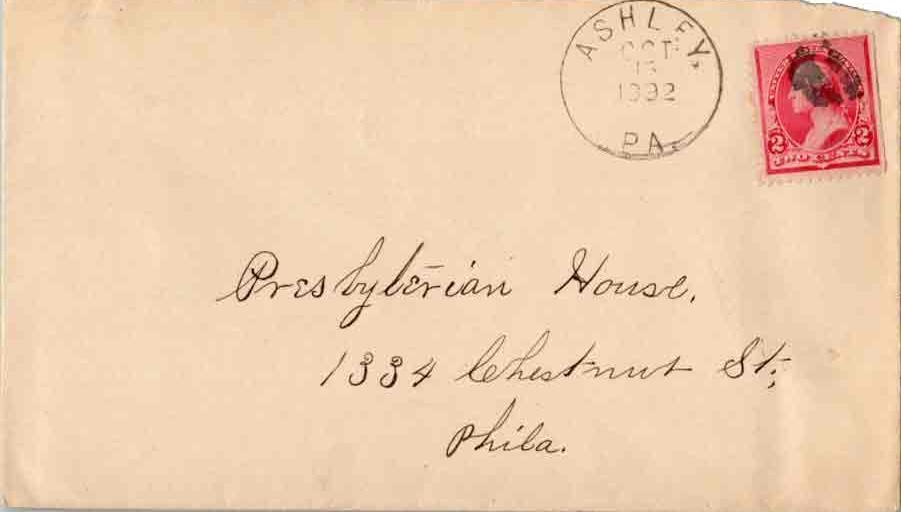 ASHLEY,
OCT
1892
PA.
2 2
TWO CENTS
Presbyterian House.
1334 Chestnut St.,
Phila.